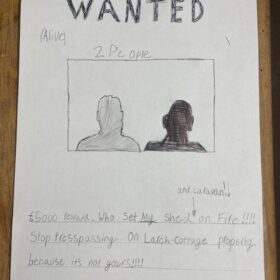 WANTED
(Alive)
2 People
and caravan!!
£5000 reward. Who Set My Shed on Fire !!!!
Stop tresspassing On Larch-Cottage property
because it's not yours!!!!